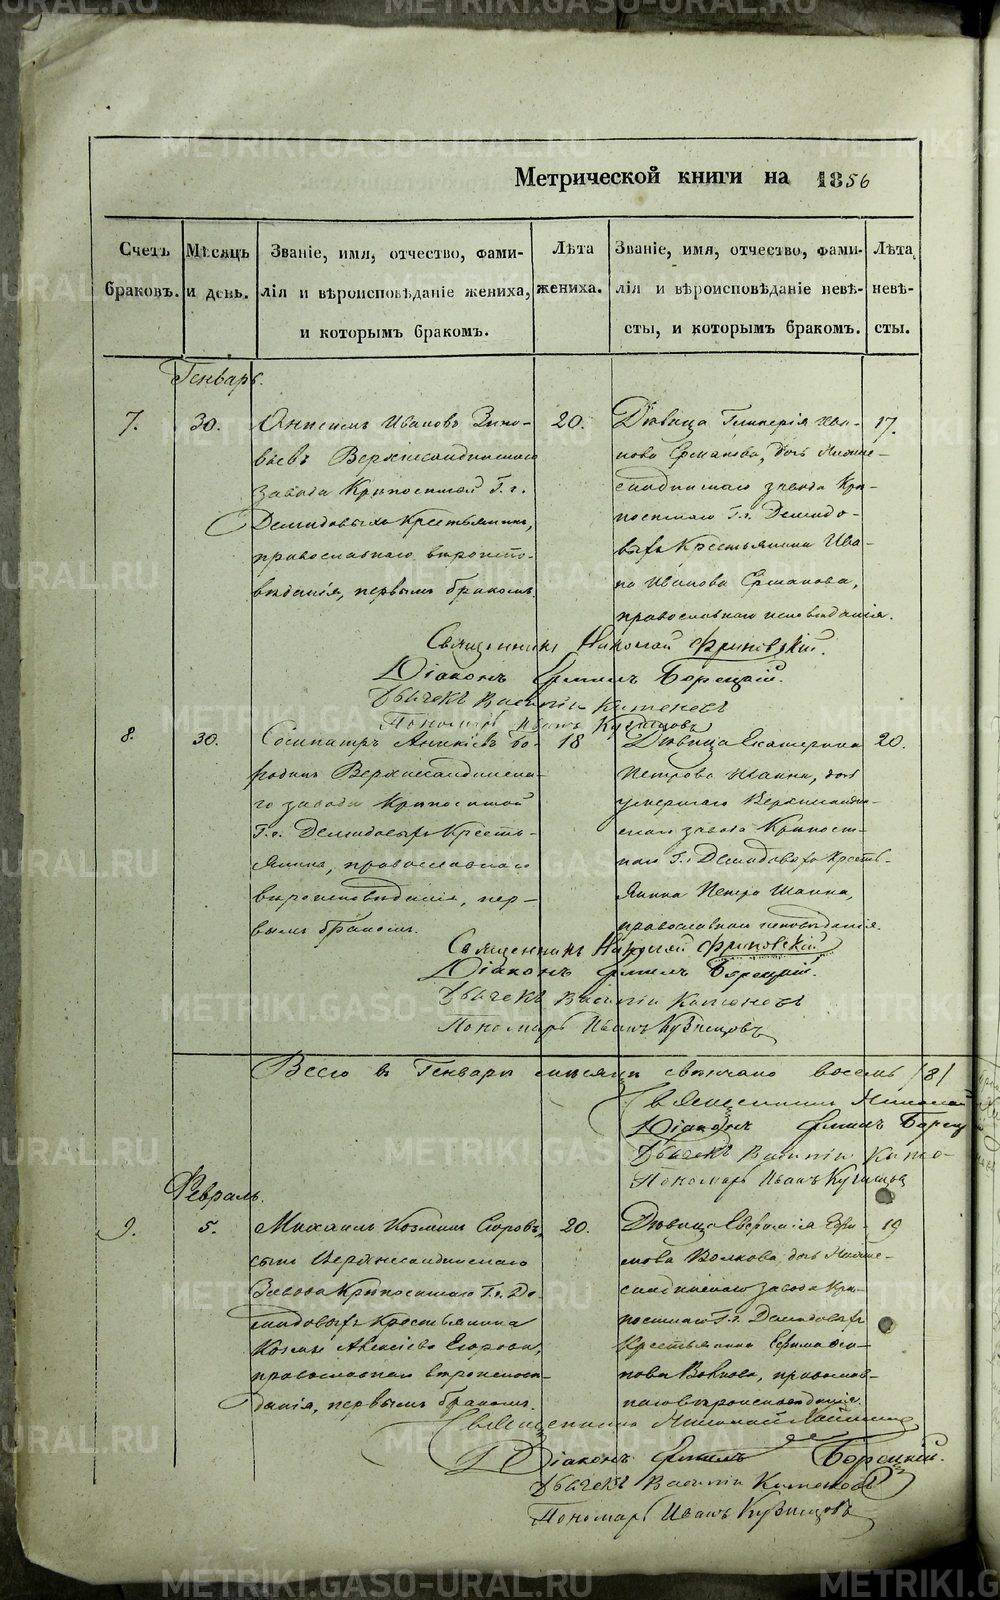 Метрической книги на 1856
Счетъ браковъ.
Мѣсяцъ и день.
Званіе, имя, отчество, фами-
лія и вѣроисповѣданіе жениха,
и которымъ бракомъ.
Лѣта жениха.
Званіе, имя, отчество, фами-
лія и вѣроисповѣданіе невѣ-
сты, и которымъ бракомъ.
Лѣта невѣ-
сты.
Генварь.
7.
30.
Анисимъ Ивановъ Зино-
вьевъ Верхнесалдинскаго
завода Крѣпостной Г.г.
Демидовыхъ Крестьянинъ,
православнаго вѣроиспо-
вѣданія, первымъ бракомъ.
20.
Дѣвица Гликерія Ива-
нова Ермакова, дочь Нижне-
салдинскаго завода Крѣ-
постнаго Г.г. Демидо-
выхъ Крестьянина Ива-
на Иванова Ермакова,
православнаго исповѣданія.
17.
Священникъ Николай
Діаконъ Ермилъ Борецкій.
Дьячекъ Василій
Пономарь Иванъ Кузнецовъ
8.
30.
Сосипатръ Аникіевъ Бо-
родинъ Верхнесалдинска-
го завода Крѣпостной
Г.г. Демидовыхъ Кресть-
янинъ, православнаго
вѣроисповѣданія, пер-
вымъ бракомъ.
18
Дѣвица Екатерина
Петрова Шаина, дочь
умершаго Верхнесалдин-
скаго завода Крѣпост-
наго Г.г. Демидовыхъ Кресть-
янина Петра Шаина,
православнаго исповѣданія.
20.
Священникъ Николай
Діаконъ Ермилъ Борецкій.
Дьячекъ Василій
Пономарь Иванъ Кузнецовъ
Всего в Генварѣ мѣсяцѣ свѣнчано восемь /8/
Священникъ Николай
Діаконъ Ермилъ Борец
Дьячекъ Василій
Пономарь Иванъ Кузнецовъ
Февраль.
9.
5.
Михаилъ Козминъ Егоровъ,
сынъ Верхнесалдинскаго
Завода Крѣпостнаго Г.г. Де-
мидовыхъ Крестьянина
Козмы Алексіева Егорова,
православнаго вѣроисповѣ-
данія, первымъ бракомъ.
20.
Дѣвица Евфимія Ефи-
мова Волкова, дочь Нижне-
салдинскаго Завода Крѣ-
постнаго Г.г. Демидовыхъ
Крестьянина Ефима
Волкова, православ-
наго вѣроисповѣданія.
19
Священникъ Николай
Діаконъ Ермилъ Борецкій.
Дьячекъ Василій
Пономарь Иванъ Кузнецовъ
METRIKI.GASO-URAL.RU